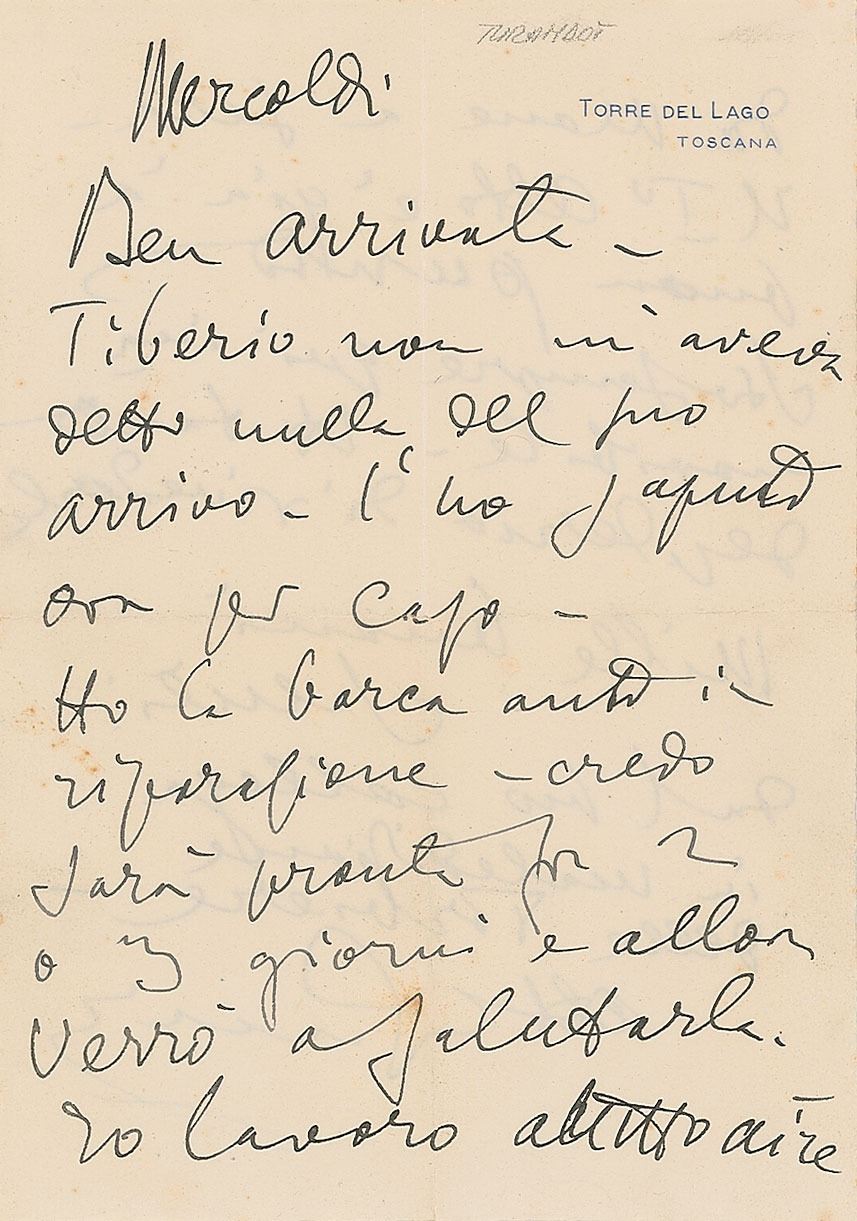 TURANDOT
Mercoldì
TORRE DEL LAGO
TOSCANA
Ben arrivata –
Tiberio non m'aveva
detto nulla del suo
arrivo – l'ho saputo
ora per caso –
Ho la barca auto in
riparazione – credo
sarà pronta fra 2
o 3 giorni e allora
verrò a salutarla.
Io lavoro